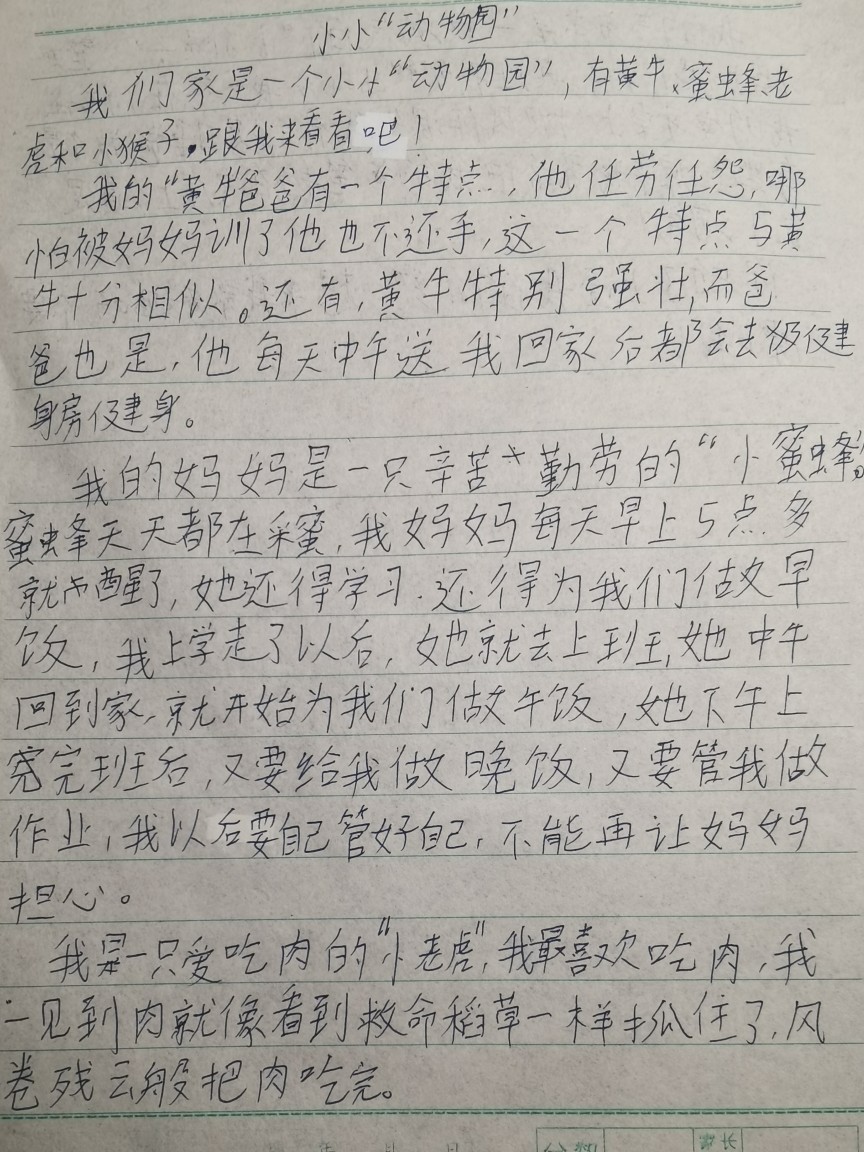 小小“动物园”
我们家是一个小小“动物园”，有黄牛、蜜蜂、老
虎和小猴子，跟我来看看吧！
我的“黄牛”爸爸有一个特点，他任劳任怨，哪
怕被妈妈训了他也不还手，这一个特点与黄
牛十分相似。还有，黄牛特别强壮，而爸
爸也是，他每天中午送我回家后都会去健
身房健身。
我的妈妈是一只辛苦勤劳的“小蜜蜂”。
蜜蜂天天都在采蜜，我妈妈每天早上5点多
就醒了，她还得学习．还得为我们做早
饭，我上学走了以后，她就去上班，她中午
回到家，就开始为我们做午饭，她下午上
完班后，又要给我做晚饭，又要管我做
作业，我以后要自己管好自己，不能再让妈妈
担心。
我是一只爱吃肉的“小老虎”，我最喜欢吃肉，我
一见到肉就像看到救命稻草一样抓住了，风
卷残云般把肉吃完。
家长